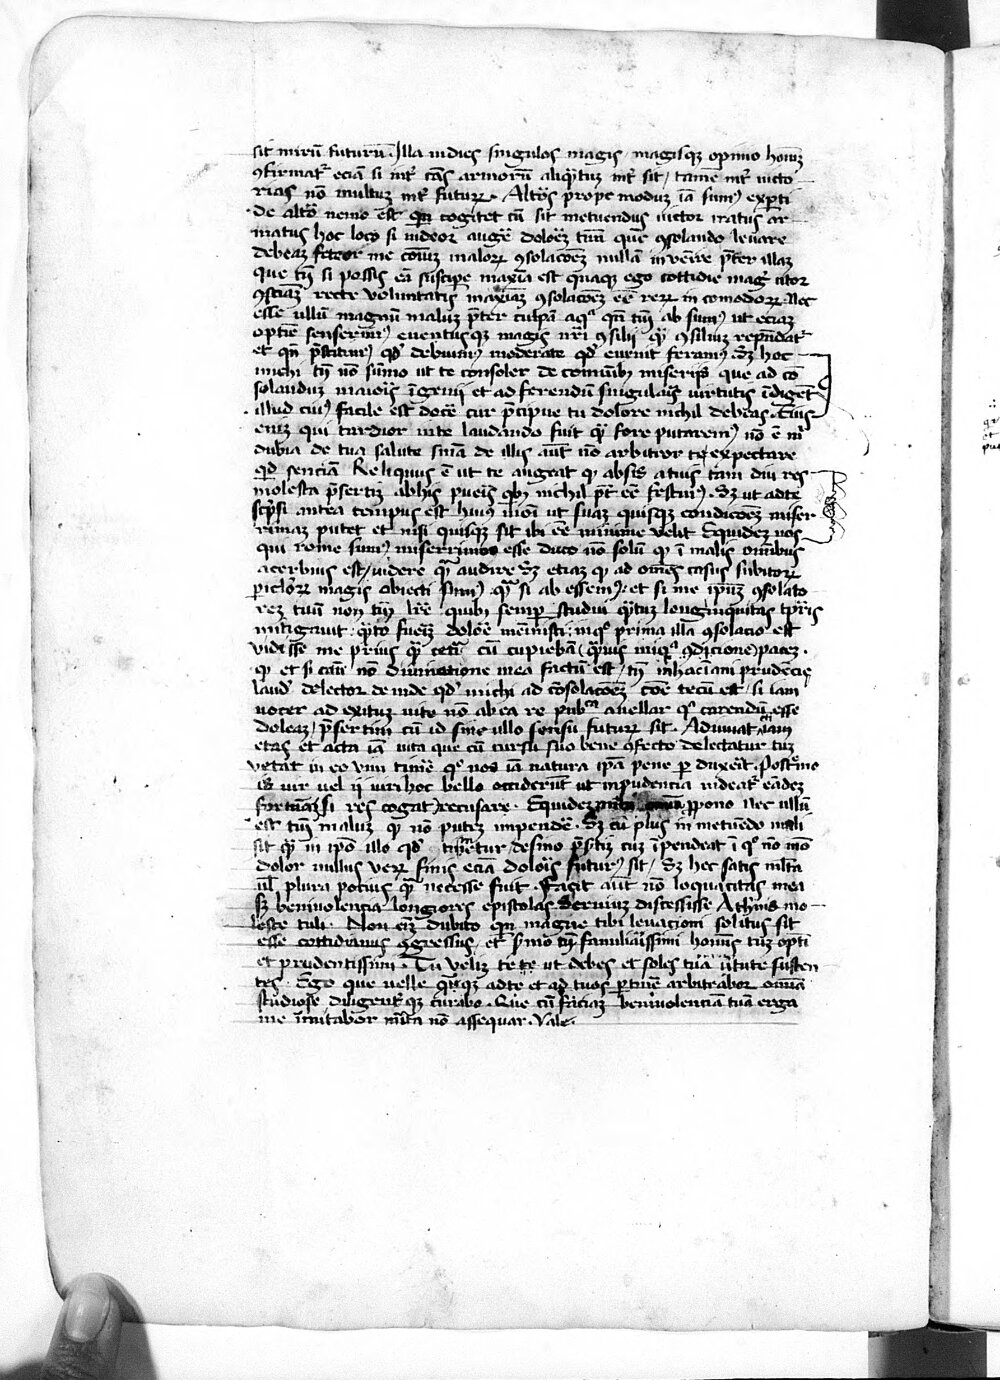 sit mirũ futurũ. Illa indies singulos magis magisqȝ opinio homīȝ
ꝯfirmat᷒ eciā si int᷒ cās armorũ aliqͣtuȝ int᷒ sit / tamē int᷒ victo
rias nō multuȝ int᷒ futuꝝ. Altōs prope moduȝ iā sumꝰ exꝑti
de altō nemo est qn cogitet cũ sit metuendus victor iratus ar
matus hoc loco si videoꝛ augē dolōȝ tuũ quē ꝯsolando levare
debeaȝ fateor me coĩuȝ maloꝝ ꝯsolacōeȝ nullā invenire p̄ter illaȝ
que tn̄ si possis eā suscipe maxīa est quaqȝ ego cottidie mag᷒ utor
ꝯsciāȝ recte voluntatis maxīaȝ ꝯsolacōeȝ eē reꝝ in comodoꝝ. Nec
esse ullũ magnũ maluȝ p̄ter culpā aqͣ qn̄ tm̄ ab sumꝰ ut eciaȝ
optīe senserimꝰ eventusqȝ magis nr̄i ꝯsilii qͣȝ ꝯsiliuȝ rep̄ndat᷒
et qn p̄stiturꝰ qd̄ debuimꝰ moderate qd̄ evenit feramꝰ. Sȝ hoc
michi tn̄ nō sũmo ut te consoler de comũibȝ miseriis que ad cō
solanduȝ maioris īgenii et ad ferendũ singularis virtutis īdigēt
illud cuivꝰ facile est docē cur p̄cipue tu dolore nichil debeas. Eius
eniȝ qui tardior inte laudando fuit qͣȝ fore putaremꝰ nō ē m̄
dubia de tua salute sn̄ia de illis aut nō arbitror te expectare
qd̄ senciā Reliquus ē ut te augeat qͥ absis atuis tam diu res
molesta p̄sertiȝ abhis pueris qͥbȝ nichil pt̄ eē festiuiꝰ. Sȝ ut adte
scͥpsi antea tempus est huiꝰ mōi ut suaȝ quisqȝ condicōeȝ miser
rimaȝ putet et nisi quisqȝ sit ibi eē minime velit Equideȝ nos
qui rome sumꝰ miserrimos esse duco nō solũ qͥ ī malis oĩnibus
acerbius est / videre qͣȝ audire Sȝ etiaȝ qͥ ad om̄es casus subitoꝝ
ꝑicloꝝ magis obiecti sumꝰ qͣȝ si ab essemꝰ: et si me ip̄uȝ ꝯsolato
reȝ tuũ non tn̄ lr̄e quibȝ semꝑ studui qͣntuȝ longinquitas tp̄ris
mitigavit qͣnto fuerīȝ dolōe meīsti: inqͣ prima illa ꝯsolacio est
vidisse me prius qͣȝ ceti cũ cupiebā (qͣvis iniqͣ ꝯdicione) paceȝ.
qͥ et si casu nō divinatione mea factũ est / tn̄ inhac inani prudencie
laud᷒ delector deinde qd̄ michi ad cōsolacōeȝ cōe tecũ est / si iam
vocer ad exituȝ vite nō ab ea re pubᶜᵃ avellar qͣ carendũ esse
doleaȝ / p̄sertim cũ id sine ullo sensu futuꝝ sit. Adiuuat etiam
etas et acta iā vita que cũ cursu suo bene ꝯfecto delectatur tuȝ
vetat in eo vim timē qͦ nos iā natura ip̄a pene ꝑ duxerit. Postremo
is vir vel ii viri hoc bello occiderũt ut inpudentia videat᷒ eādeȝ
fortunāȝ si res cogat / recusare. Equideȝ ꝓpono nec ullũ
est tm̄ maluȝ qͥ nō puteȝ impendē. Sȝ cũ plus in metuēdo mali
sit qͣȝ in ip̄o illo qd̄ timetur desino p̄sertiȝ cuȝ īpendeat ī qͦ nō mō
dolor nullus veꝝ finis eciā doloris futurꝰ sit / Sȝ hec satis ml̄ta
vl̄ plura potius qͣȝ necesse fuit. Facit aut nō loquacitas mea
Sȝ benivolencia longiores epistolas Serviuȝ discessisse Athenis mo
leste tuli. Non eniȝ dubito qn magne tibi levacioni solitus sit
esse cottidianus ꝯgressus / et s̄mo tn̄ familiarissimi hominis tuȝ opti
et prudentissimi. Tu veliȝ te te ut debes et soles tua v̄tute susten
tes. Ego que velle queqȝ adte et ad tuos ꝑtinē arbitrabor oīnia
studiose diligent᷒ qȝ curabo. Que cũ faciaȝ benivolentiā tuā erga
me imitabor m̄ita nō assequar. Vale.